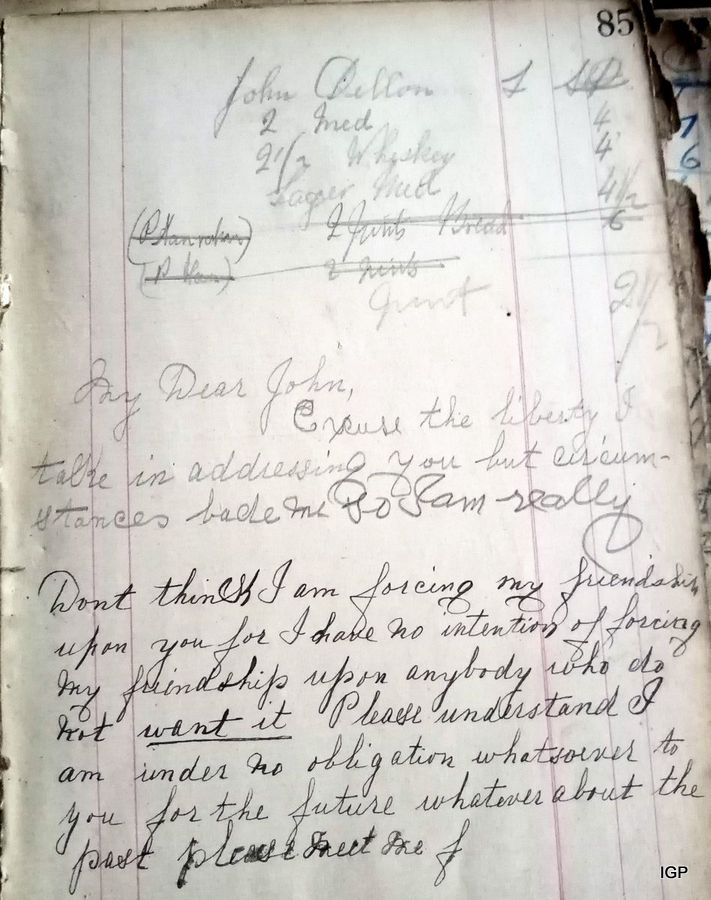 85
John Dillon 1
2 Med 4
2 1/2 Whyskey 4
Lager Med 4 1/2
2 Pints Bread 6
2 Pints
2 1/2
My Dear John,
Excuse the liberty I
take in addressing you but circum-
stances bade me So I am really
Dont think I am forcing my friendship
upon you for I have no intention of forcing
my friendship upon anybody who do
not want it Please understand I
am under no obligation whatsoever to
you for the future whatever about the
past please meet me f
IGP